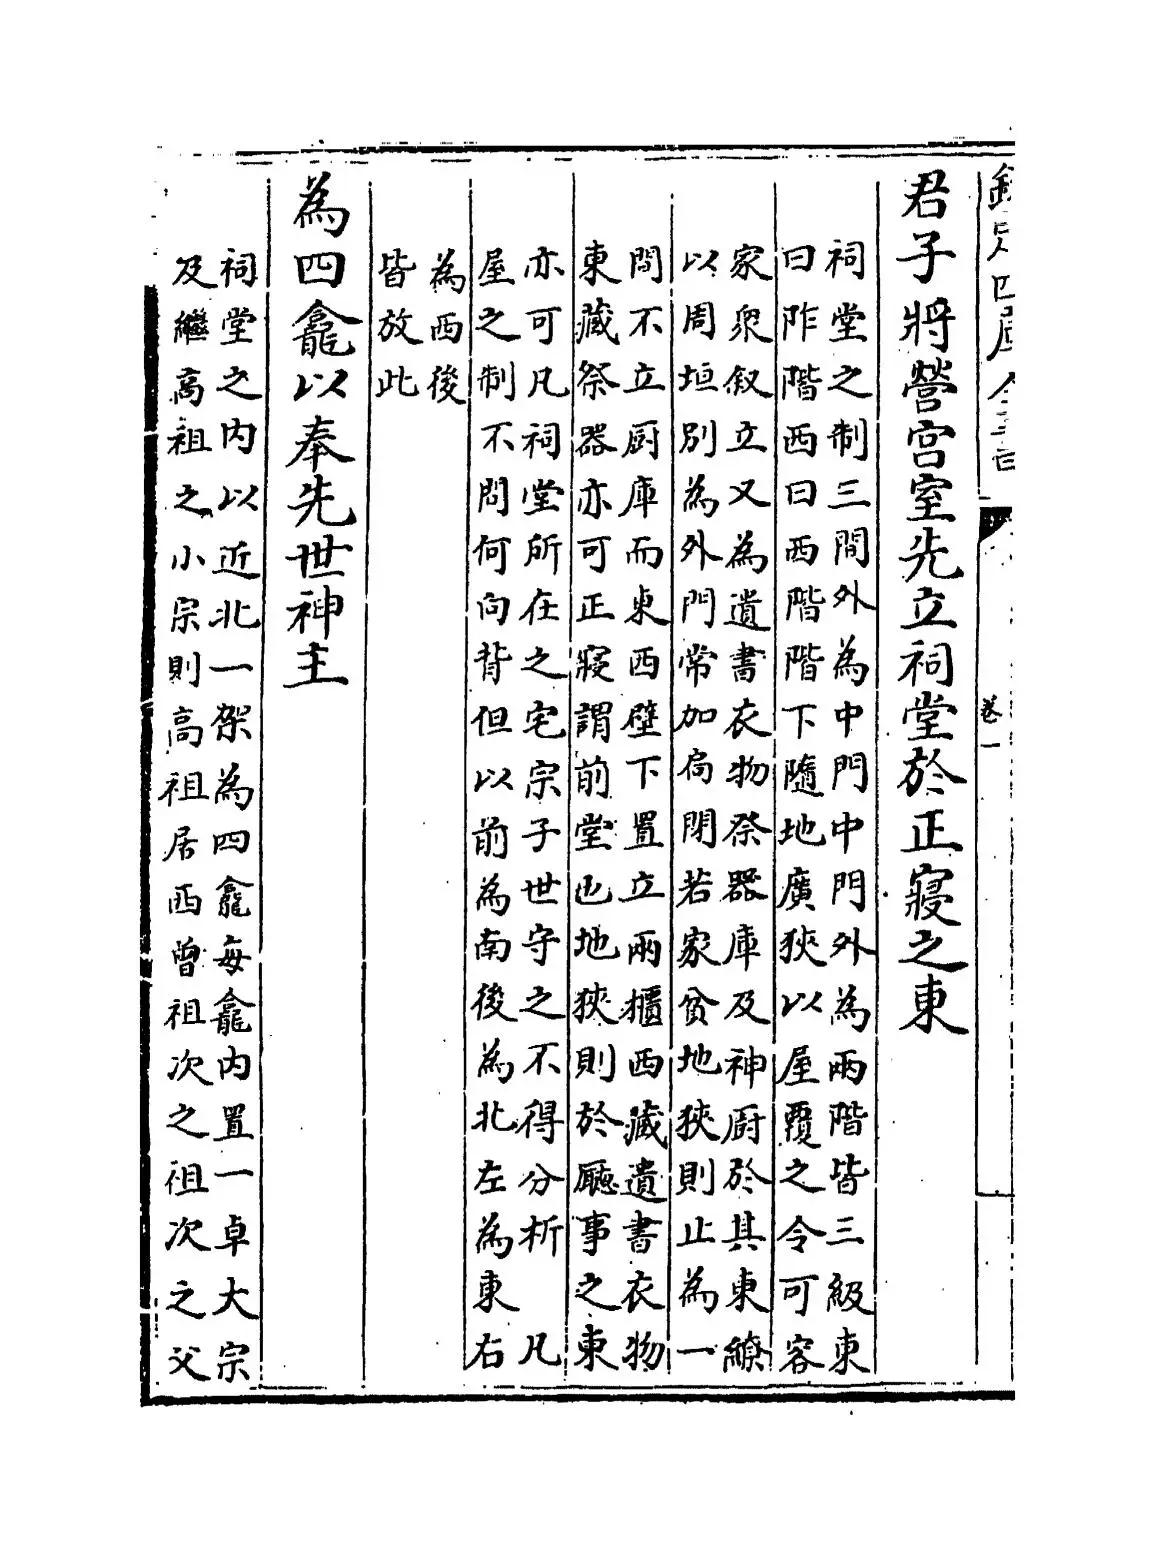 欽定四庫全書
卷一
君子將營宮室先立祠堂於正寢之東
祠堂之制三間外為中門中門外為兩階皆三級東
曰阼階西曰西階階下隨地廣狹以屋覆之令可容
家衆叙立又為遺書衣物祭器庫及神厨於其東繚
以周垣别為外門常加扃閉若家貧地狹則止為一
間不立厨庫而東西壁下置立兩櫃西藏遺書衣物
東藏祭器亦可正寢謂前堂也地狹則於廳事之東
亦可凡祠堂所在之宅宗子世守之不得分析　凡
屋之制不問何向背但以前為南後為北左為東右
為西後
皆放此
為四龕以奉先世神主
祠堂之内以近北一架為四龕每龕内置一卓大宗
及繼高祖之小宗則高祖居西曾祖次之祖次之父